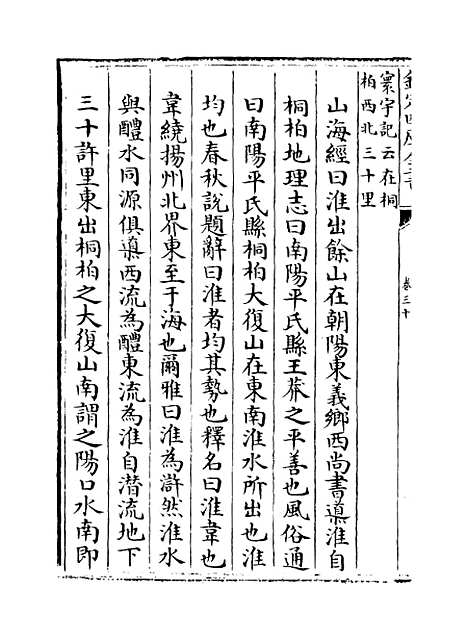 欽定四庫全書
卷三十
寰宇記云在桐
柏西北三十里
山海經曰淮出餘山在朝陽東義鄉西尚書導淮自
桐柏地理志曰南陽平氏縣王莽之平善也風俗通
曰南陽平氏縣桐柏大復山在東南淮水所出也淮
均也春秋說題辭曰淮者均其勢也釋名曰淮韋也
韋繞揚州北界東至于海也爾雅曰淮為滸然淮水
與醴水同源俱導西流為醴東流為淮自潛流地下
三十許里東出桐柏之大復山南謂之陽口水南即